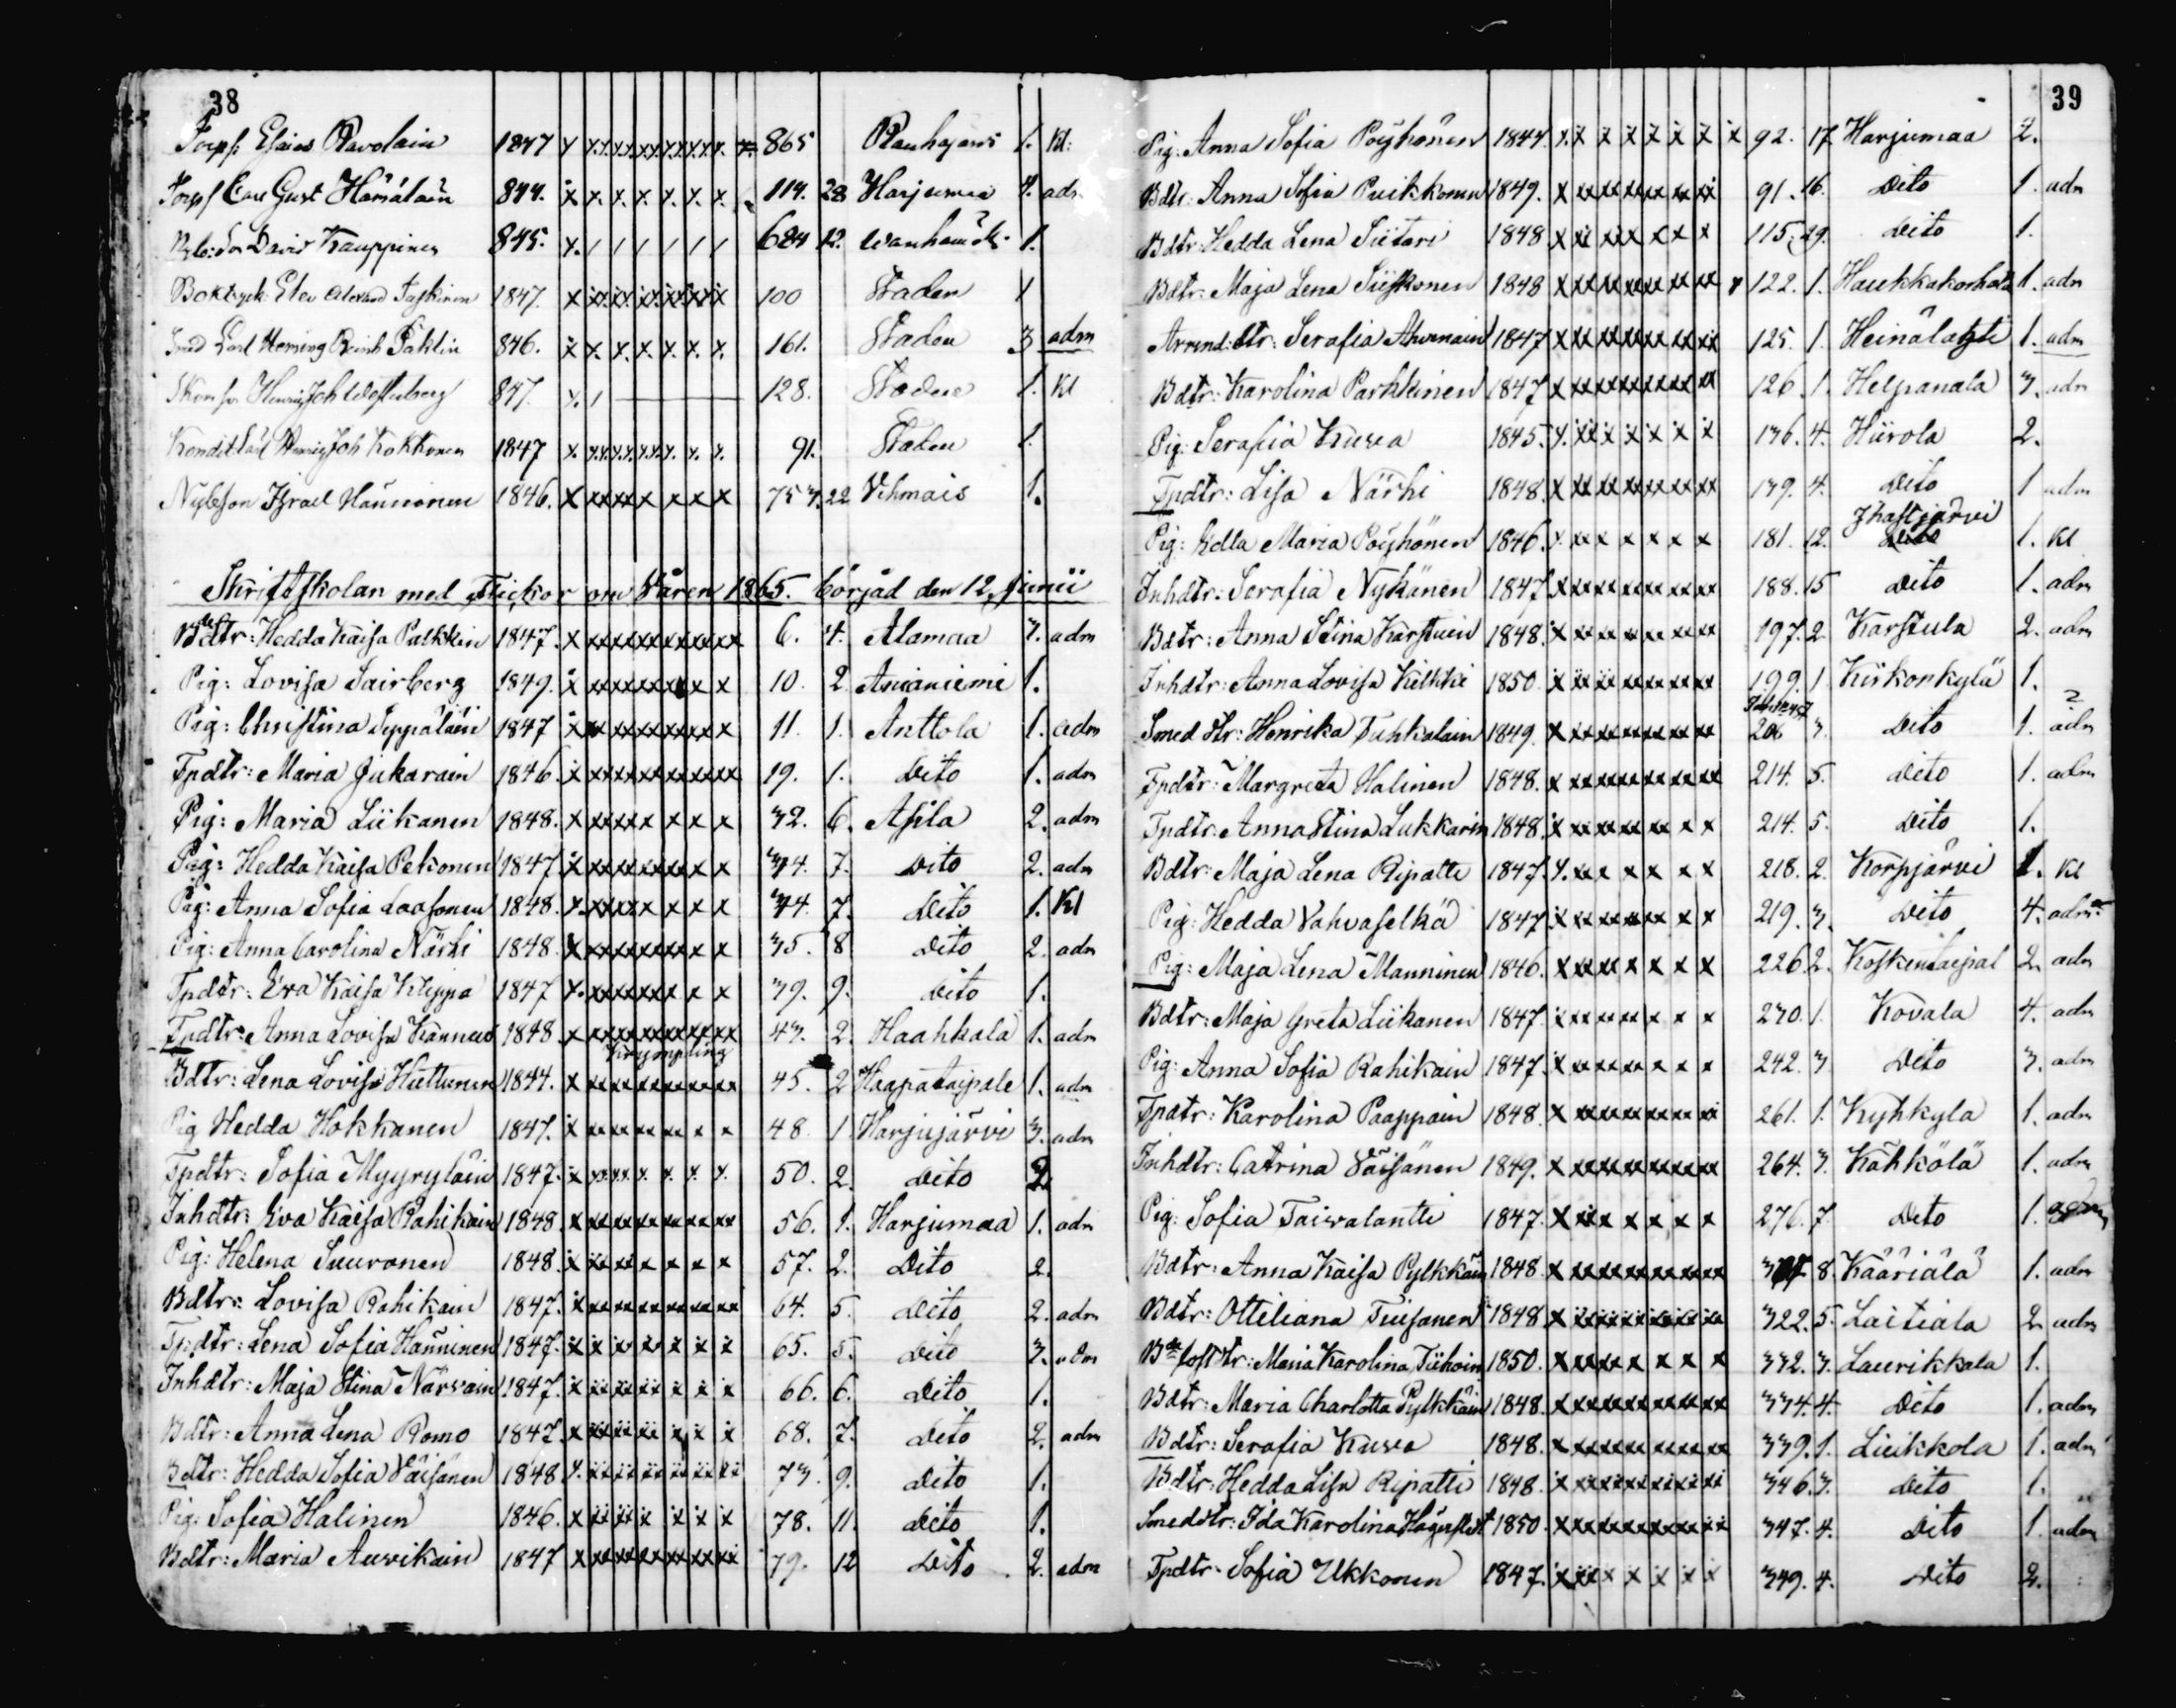 38
Torps: Esaias Ravolain 1847 865 Rauhajärvi 1. Kl.
Torps Carl Gust Hämäläin 844. 114. 28 Harjumaa 4. adm
Son David Kauppinen 845. 624 12. 1.
Boktryck: Elev Taskinen 1847. 100 Staden 1
Carl Reinh Pahlin 846. 161. Staden 3 adm
Joh Westerberg 847. 128. Staden 1. Kl
Joh Kokkonen 1847 91. Staden 1.
Nybson Israel Hänninen 1846. 757. 22 Vehmais 1.
Skriftskolan med Flickor om Våren 1865. börjad den 12 Junii
Bdtr: Hedda Kaisa Pulkkin 1847. 6. 4. Alamaa 3. adm
Pig: Lovisa Sairberg 1849. 10. 2 Anianiemi 1.
Pig: Christina Seppäläin 1847 11. 1. Anttola 1. adm
Tpdtr: Maria Jukarain 1846. 19. 1. Dito 1. adm
Pig: Maria Liikanen 1848. 32. 6. Asila 2. adm
Pig: Hedda Kaisa Pekonen 1847. 34. 7. Dito 2. adm
Pig: Anna Sofia Laasonen 1848. 34. 7. Dito 1. Kl
Pig: Anna Carolina Närhi 1848. 35. 8 Dito 2. adm
Tpdtr: Eva Kaisa Knippa 1847 39. 9. Dito 1.
Tpdtr: Anna Lovisa Kannus 1848. 43. 2. Haahkala 1. adm
Krympling
Bdtr: Lena Lovisa Huttunen 1844. 45. 2 Haapataipale 1. adm
Pig Hedda Hokkanen 1847. 48. 1. Harjujärvi 3. adm
Tpdtr: Sofia Myyryläin 1847. 50. 2. Dito 2.
Inhdtr: Eva Kaisa Rahikain 1848 56. 1. Harjumaa 1. adm
Pig: Helena Suuronen 1848. 57. 2. Dito 2.
Bdtr: Lovisa Rahikain 1847. 64. 5. Dito 2. adm
Tpdtr: Lena Sofia Hänninen 1847. 65. 5. Dito 3. adm
Inhdtr: Maja Stina Närvain 1847. 66. 6. Dito 1.
Bdtr: Anna Lena Romo 1847. 68. 7. Dito 2. adm
Bdtr: Hedda Sofia Väisänen 1848 73. 9. Dito 1.
Pig: Sofia Halinen 1846. 78. 11. Dito 1.
Bdtr: Maria Auvikain 1847 79. 12 Dito 2. adm
39
Pig: Anna Sofia Pöyhönen 1844. 92. 17 Harjumaa 2.
Bdtr: Anna Sofia Puikkonen 1849. 91. 16. Dito 1. adm
Bdtr: Hedda Lena Siitari 1848 115. 29. Dito 1.
Bdtr: Maja Lena Siiskonen 1848 122. 1. Haukkakorhola 1. adm
Arrend:dtr: Serafia Ahvenain 1847 125. 1. Heinälahti 1. adm
Bdtr: Karolina Parkkinen 1847 126. 1. Helpanala 3. adm
Pig: Serafia Kuva 1845. 136. 4. Hiirola 2.
Tpdtr: Lisa Närhi 1848. 139. 4. Dito 1 adm
Ihastjärvi
Pig: Edla Maria Pöyhönen 1846. 181. 12. Dito 1. Kl
Inhdtr: Serafia Nykänen 1847. 188. 15 Dito 1. adm
Bdtr: Anna Stina Karstuin 1848. 197. 2 Karstula 2. adm
Inhdtr: Anna Lovisa Kilkki 1850. 199. 1 Kirkonkylä 1.
Smed dtr: Henrika Tuhkalain 1849. 206 3. Dito 1. adm
Tpdtr: Margreta Halinen 1848. 214. 5. Dito 1. adm
Tpdtr: Anna Stina Lukkarin 1848. 214. 5. Dito 1.
Bdtr: Maja Lena Ripatti 1847. 218. 2. Korpjärvi 1. Kl
Pig: Hedda Vahvaselkä 1847. 219. 3. Dito 4. adm
Pig: Maja Lena Manninen 1846. 226. 2. Koskentaipal 2. adm
Bdtr: Maja Greta Liikanen 1847. 230. 1. Kovala 4. adm
Pig: Anna Sofia Rahikain 1847. 242. 3 Dito 3. adm
Tpdtr: Karolina Paappain 1848. 261. 1. Kyhkyla 1. adm
Inhdtr: Catrina Väisänen 1849. 264. 3. Kähkölä 1. adm
Pig: Sofia Taivalantti 1847. 276. 7. Dito 1. adm
Bdtr: Anna Kaisa Pylkkäin 1848. 8. Kääriälä 1. adm
Bdtr: Ottiliana Tiusanen 1848. 322. 5. Laitiala 2. adm
Maria Karolina Tiihoin 1850. 332. 3. Laurikkala 1.
Bdtr: Maria Charlotta Pylkkäin 1848. 334. 4. Dito 1. adm
Bdtr: Serafia Kuva 1848. 339. 1. Liukkola 1. adm
Bdtr: Hedda Lisa Ripatti 1848. 346. 3. Dito 1.
Smeddtr: Ida Karolina 1850. 347. 4. Dito 1. adm
Tpdtr: Sofia Ukkonen 1847. 349. 4. Dito 2.